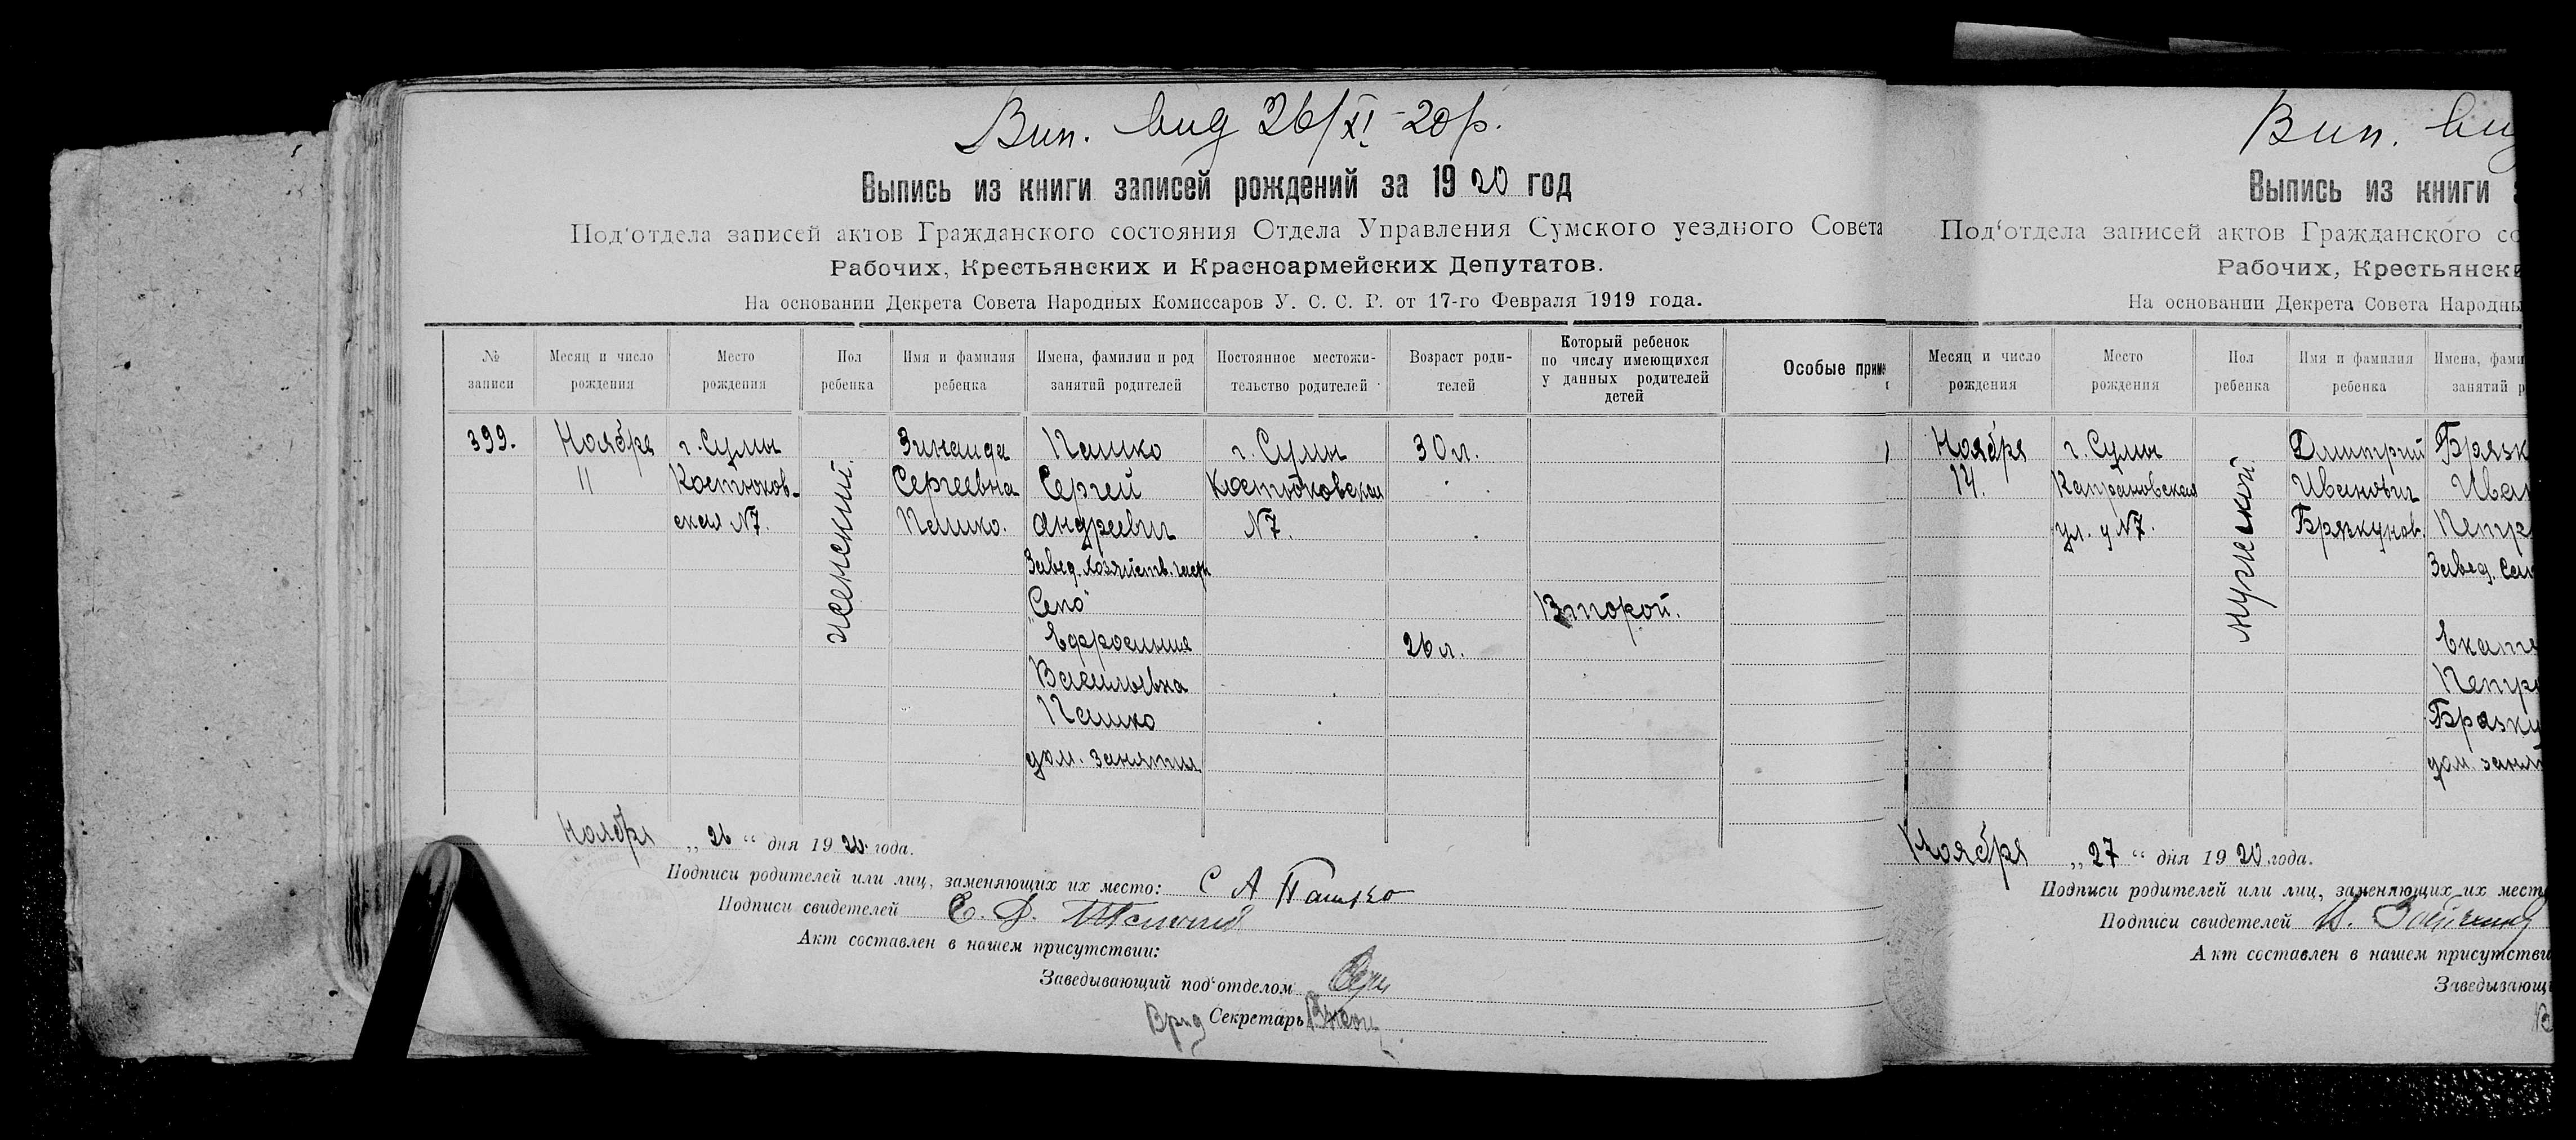 Вип. вид 26/XI-20р.
Выпись из книги записей рождений за 1920 год
Под'отдела записей актов Гражданского состояния Отдела Управления Сумского уездного Совета
Рабочих, Крестьянских и Красноармейских Депутатов.
На основании Декрета Совета Народных Комиссаров У. С. С. Р. от 17-го Февраля 1919 года.
№ записи
Месяц и число рождения
Место рождения
Пол ребенка
Имя и фамилия ребенка
Имена, фамилии и род занятий родителей
Постоянное местожительство родителей
Возраст родителей
Который ребенок по числу имеющихся у данных родителей детей
Особые прим
399.
Ноября
11
г. Сумы
Костюков-
ская №7.
женский.
Зинаида
Сергеевна
Пашко.
Пашко
Сергей
Андреевич
Завед. Хозяйств. части
"Сепо"
Ефросиния
Васильевна
Пашко
дом. занятия
г. Сумы
Костюковская
№7.
30 л.
26 л.
Второй.
Ноября „26“ дня 1920 года.
Подписи родителей или лиц, заменяющих их место: С А Пашко
Подписи свидетелей
Акт составлен в нашем присутствии:
Заведывающий под'отделом
Врид Секретарь
Вип.
Выпись из книги
Под'отдела записей актов Гражданского со
Рабочих, Крестьянск
На основании Декрета Совета Народны
Месяц и число рождения
Место рождения
Пол ребенка
Имя и фамилия ребенка
Имена, фами
занятий р
Ноября
14.
г. Сумы
ул. д №7.
мужской
Дмитрий
Иванович
Брязкунов.
Брязк
Иван
Петр
Завед.
Екате
Петро
Брязку
дом. занят
Ноября „27“ дня 1920 года.
Подписи родителей или лиц, заменяющих их место
Подписи свидетелей
Акт составлен в нашем присутстви
Заведывающи